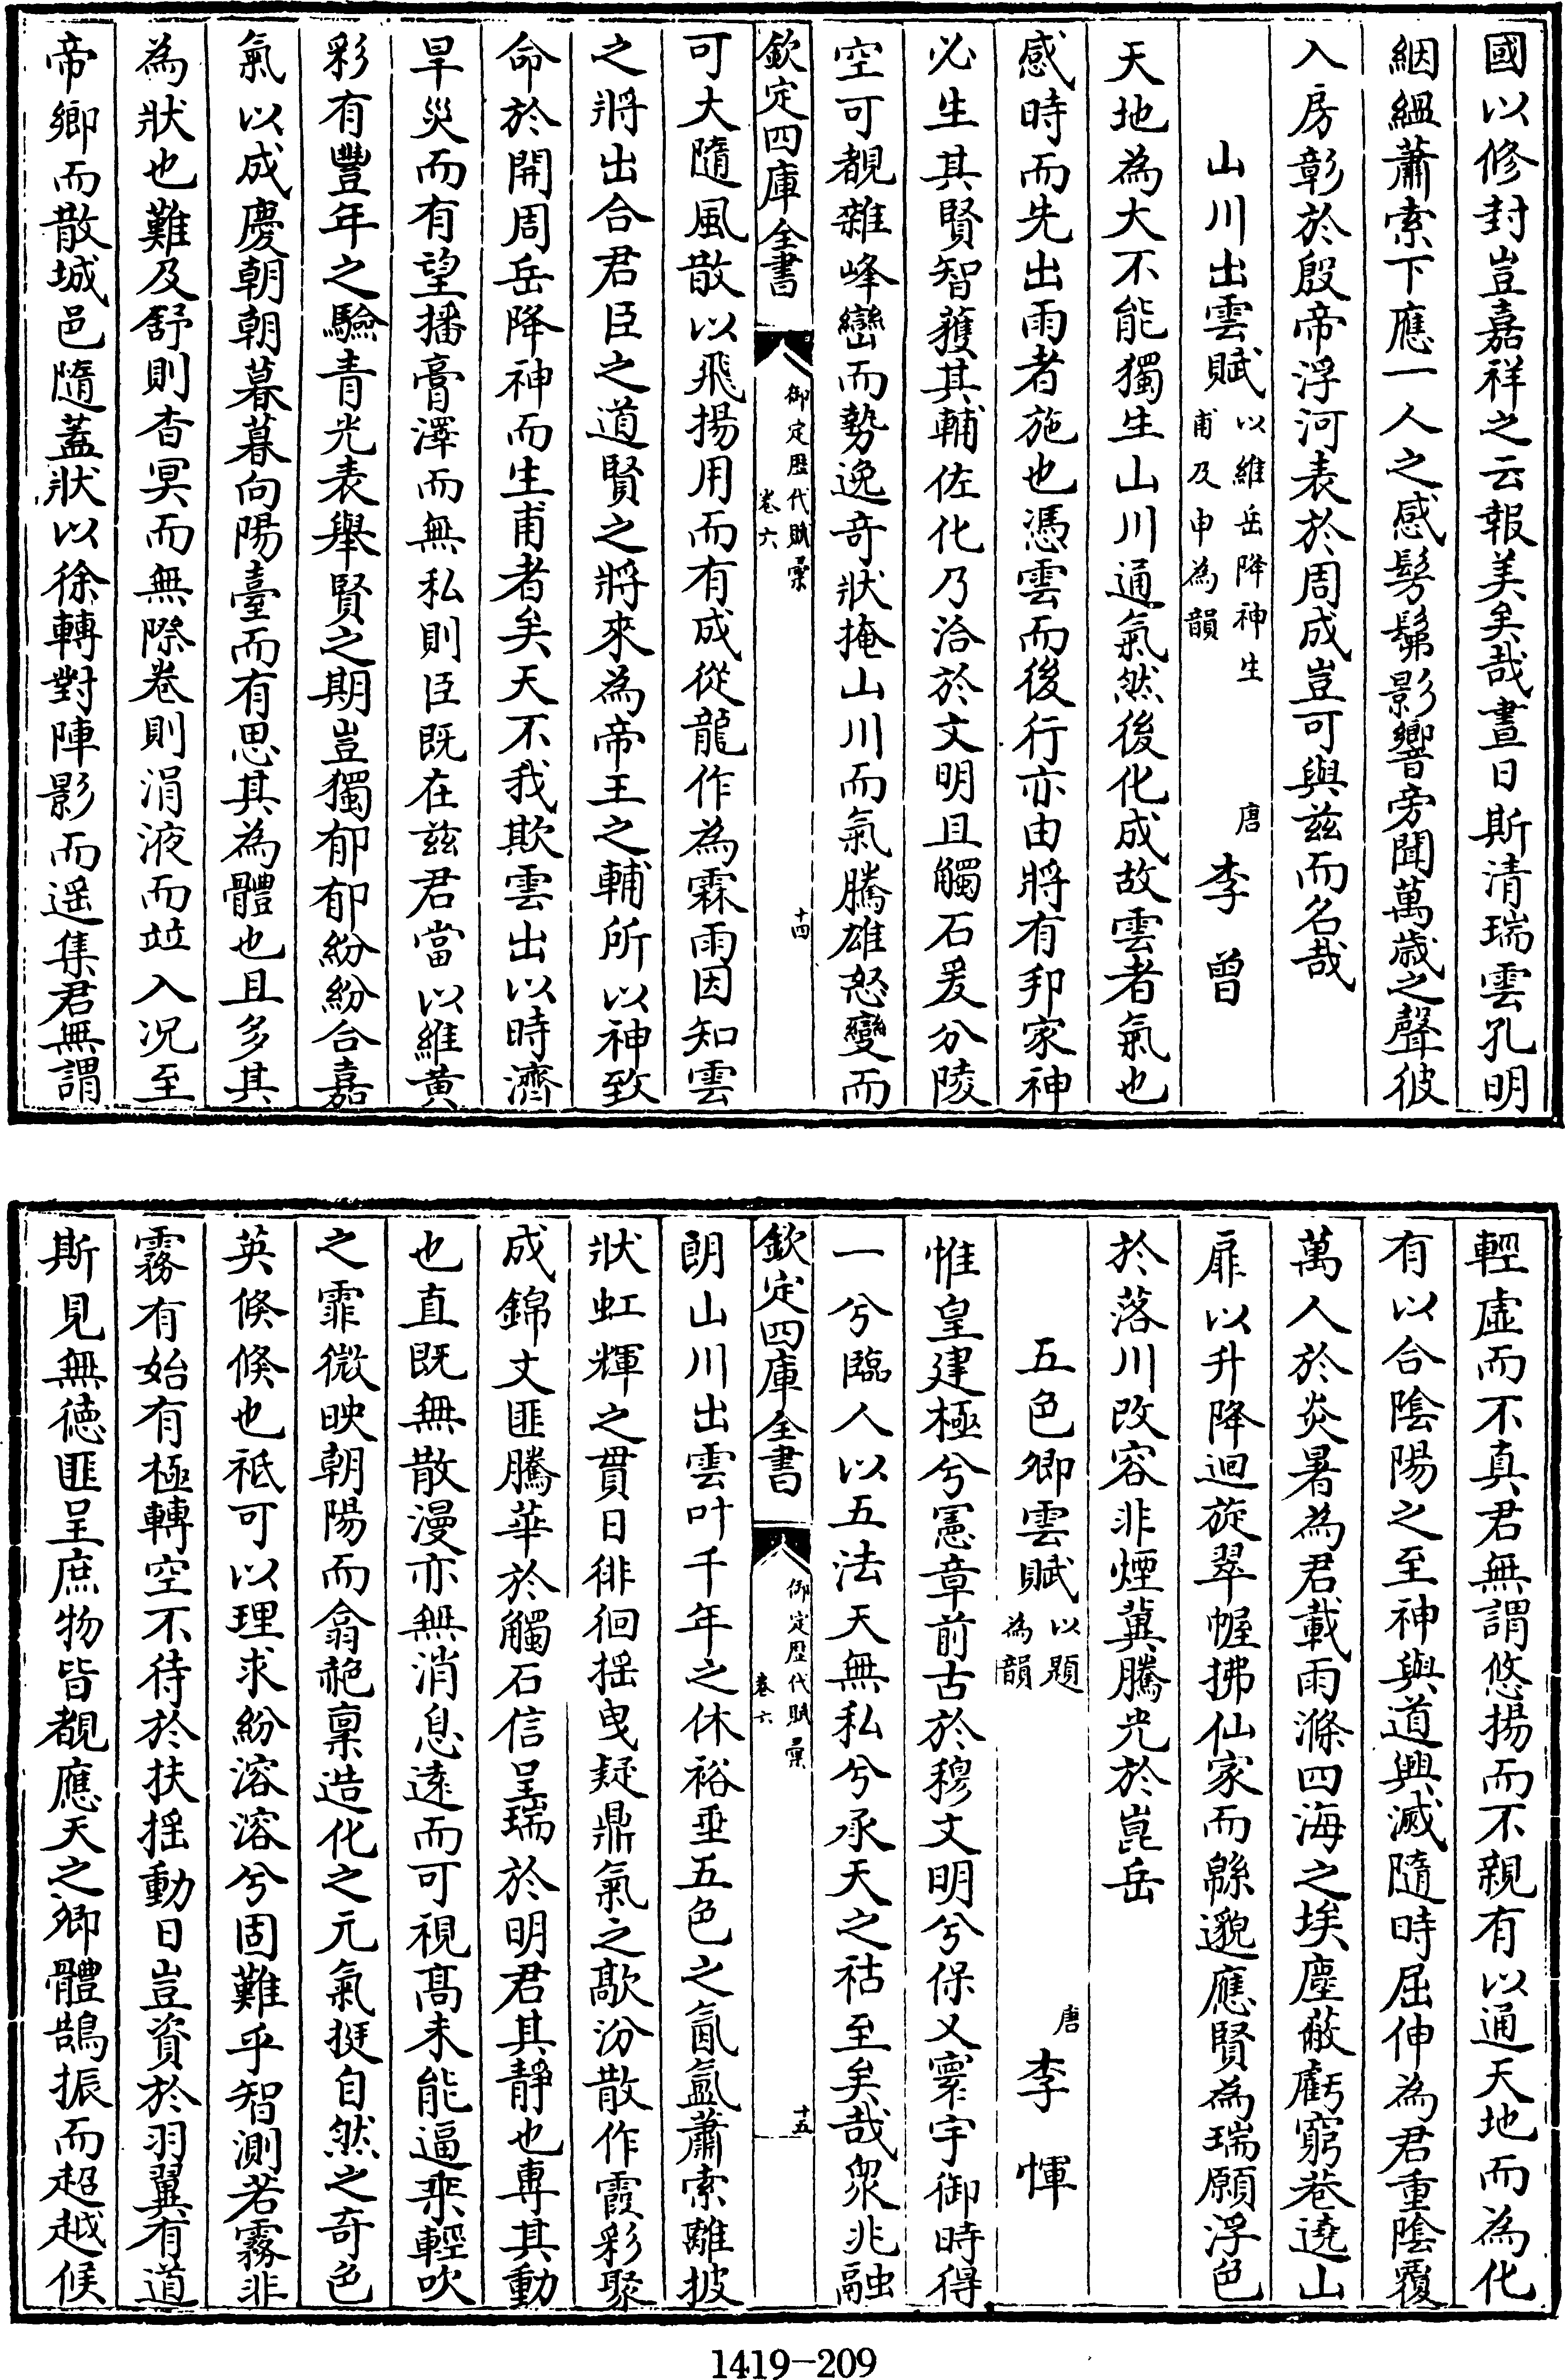 國以修封豈嘉祥之云報美矣哉晝日斯清瑞雲孔明
絪縕蕭索下應一人之感髣髴影響旁聞萬歳之聲彼
入房彰於殷帝浮河表於周成豈可與兹而名哉
山川出雲賦以維岳降神生甫及申為韻　唐李曾
天地為大不能獨生山川通氣然後化成故雲者氣也
感時而先出雨者施也憑雲而後行亦由將有邦家神
必生其賢智獲其輔佐化乃洽於文明且觸石爰分陵
空可覩雜峰巒而勢逸奇狀掩山川而氣騰雄怒變而
欽定四庫全書　御定歴代賦彙卷六　十四
可大隨風散以飛揚用而有成從龍作為霖雨因知雲
之將出合君臣之道賢之將來為帝王之輔所以神致
命於開周岳降神而生甫者矣天不我欺雲出以時濟
旱災而有望播膏澤而無私則臣既在兹君當以維黄
彩有豐年之驗青光表舉賢之期豈獨郁郁紛紛合嘉
氣以成慶朝朝暮暮向陽臺而有思其為體也且多其
為狀也難及舒則杳冥而無際卷則涓液而竝入况至
帝鄉而散城邑隨蓋狀以徐轉對陣影而遥集君無謂
輕虛而不真君無謂悠揚而不親有以通天地而為化
有以合陰陽之至神與道興滅隨時屈伸為君重陰覆
萬人於炎暑為君載雨滌四海之埃塵蔽虧窮巷遶山
扉以升降迴旋翠幄拂仙家而緜邈應賢為瑞願浮色
於落川改容非煙冀騰光於崑岳
五色卿雲賦以題為韻　唐李惲
惟皇建極兮憲章前古於穆文明兮保乂寰宇御時得
一兮臨人以五法天無私兮承天之祜至矣哉衆兆融
欽定四庫全書　御定歴代賦彙卷六　十五
朗山川出雲叶千年之休裕垂五色之氤氳蕭索離披
狀虹輝之貫日徘徊揺曳疑鼎氣之歊汾散作霞彩聚
成錦文匪騰華於觸石信呈瑞於明君其靜也專其動
也直既無散漫亦無消息遠而可視髙未能逼乘輕吹
之霏微映朝陽而翕赩稟造化之元氣挺自然之奇色
英倏倏也祗可以理求紛溶溶兮固難乎智測若霧非
霧有始有極轉空不待於扶揺動日豈資於羽翼有道
斯見無徳匪呈庶物皆覩應天之卿體鵠振而超越候
1419-209